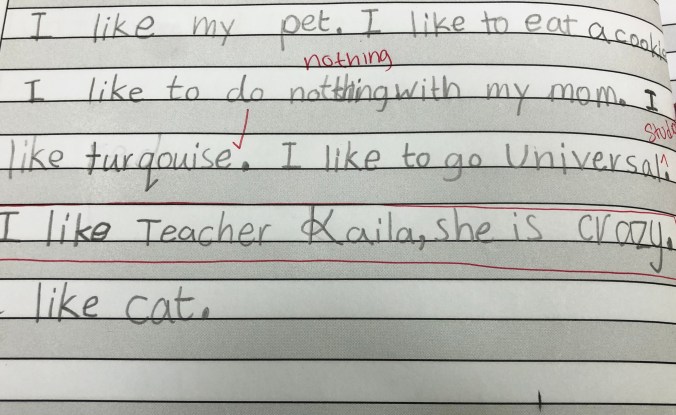 I like my pet. I like to eat a cookie
nothing
I like to do notthing with my mom. I
like turqouise. I like to go Universal.
I like Teacher Kaila, she is crazy.
like cat.